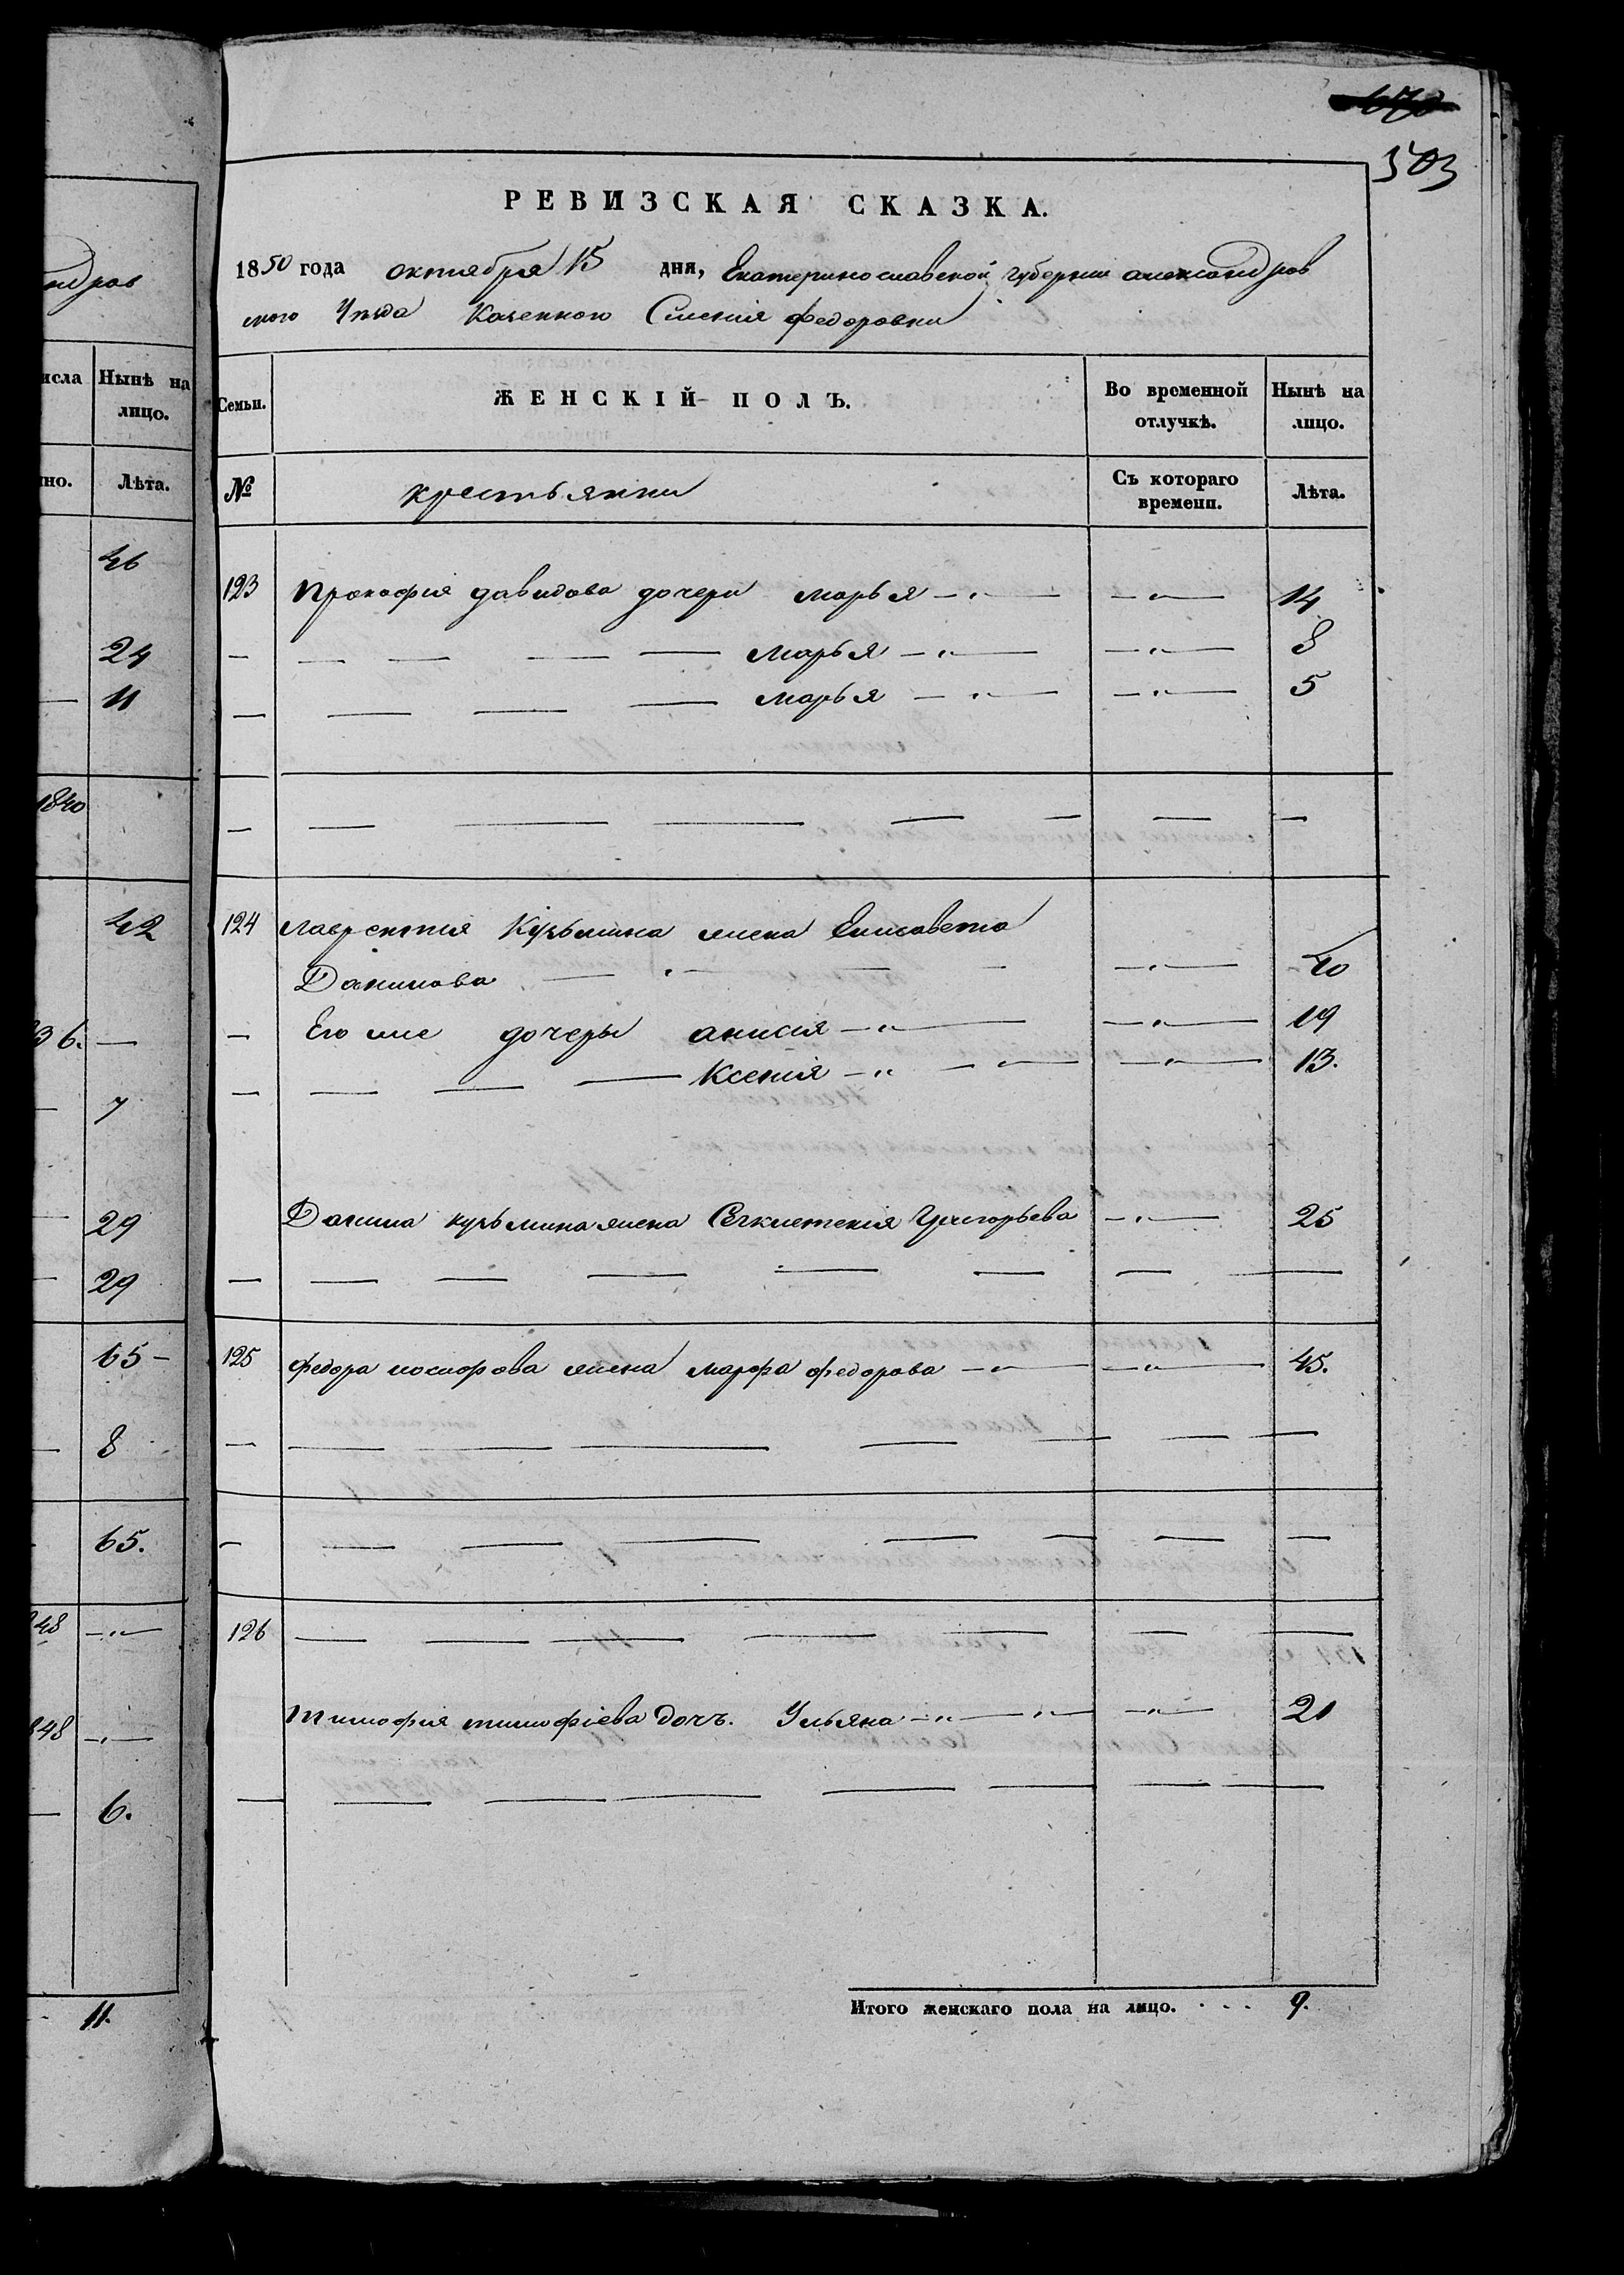 503
РЕВИЗСКАЯ СКАЗКА.
1850 года октября 15 дня, Екатеринославской губернии александров
ского Уезда Казенного Селения федоровки
ндров
исла Нынѣ на лицо.
но. Лѣта.
46
24
11
1840
42
36.
7
29
29
65
8
65.
48
848
6.
11.
Семьи. ЖЕНСКІЙ ПОЛЪ. Во временной отлучкѣ. Нынѣ на лицо.
№ крестьянки Съ котораго времени. Лѣта.
123 Прокофия давидова дочери марья 14
марья 8
марья 5
124 лаврентия Кузьмина жена Елисавета
Данилова 40
Его же дочеры анисия 19
Ксения 13.
Данила кузьмина жена Григорьева 25
125 федора иосифова жена марфа федорова 45.
126
тимофия тимофіева дочь. Ульяна 21
Итого женскаго пола на лицо. 9.